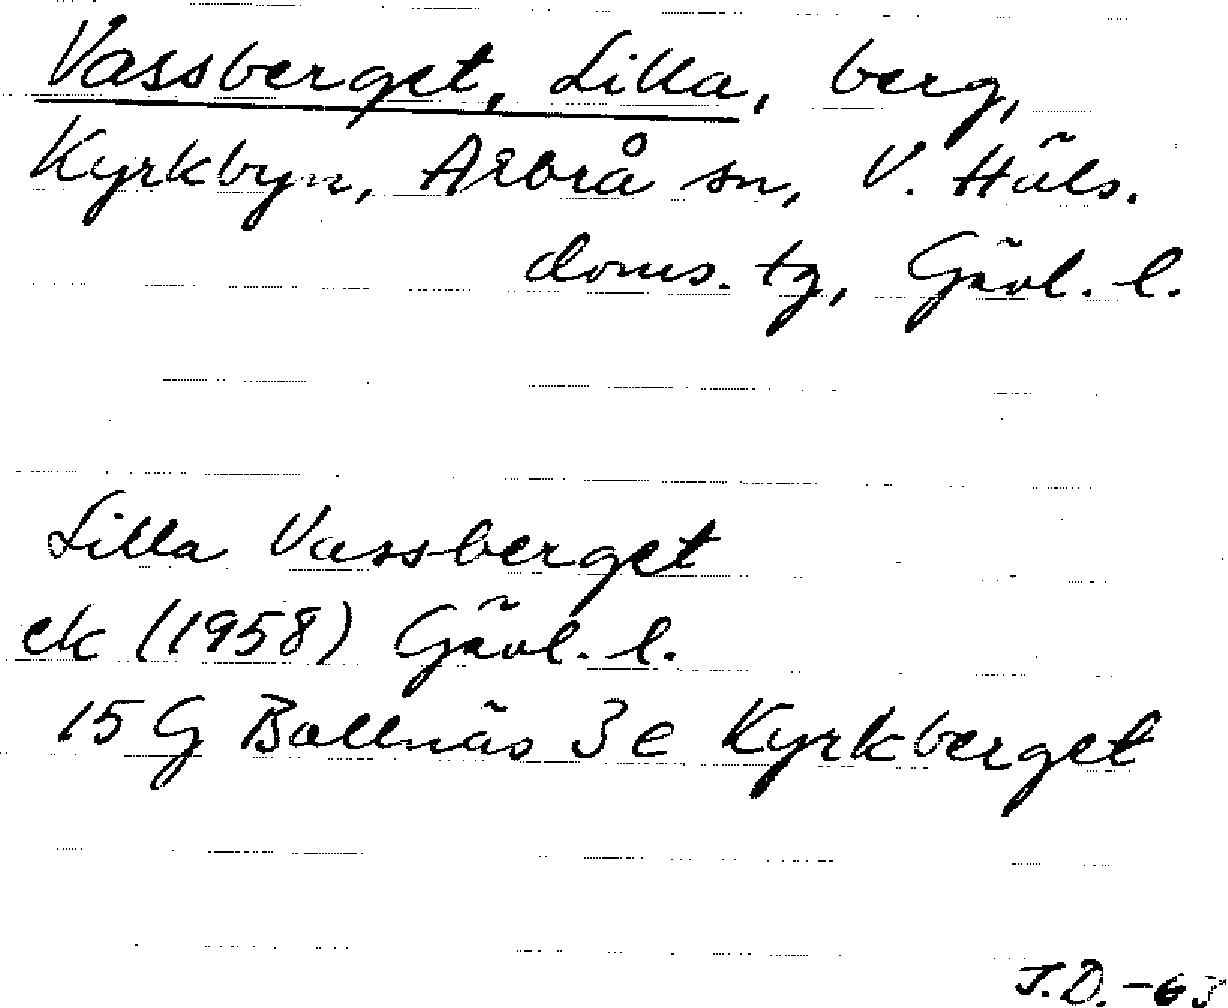 Vassberget, Lilla, berg,
Kyrkbyn, Arbrå sn, V. Häls.
doms. tg, Gävl. l.
Lilla Vassberget
ek (1958) Gävl. l.
15 G Bollnäs 3 e Kyrkberget
J.D. -63